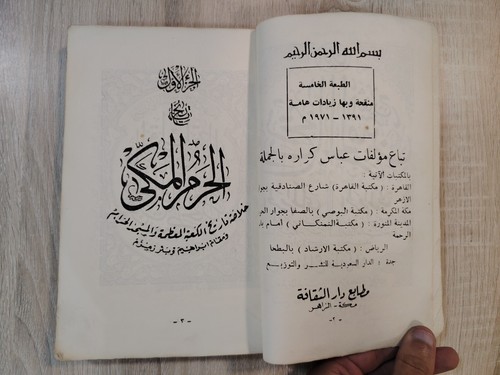 بسم الله الرحمن الرحيم
الطبعة الخامسة
منقحة وبها زيادات هامة
١٣٩١ – ١٩٧١ م
تباع مؤلفات عباس كراره بالجملة
بالمكتبات الآتية :
القاهرة : ( مكتبة القاهرة ) شارع الصنادقية بجوار
الازهر
مكة المكرمة : ( مكتبة البوصي ) بالصفا بجوار
المدينة المنورة : ( مكتبة النمنكاني ) أمام
الرحمة
الرياض : ( مكتبة الارشاد ) بالبطحا
جدة : الدار السعودية للنشر والتوزيع
مطابع دار الثقافة
مكة – الزاهر
– ٢ –
الجزء الأول
تاريخ
الحرم المكي
خلاصة تاريخ الكعبة المعظمة والمسجد الحرام
ومقام ابراهيم وبئر زمزم
– ٣ –